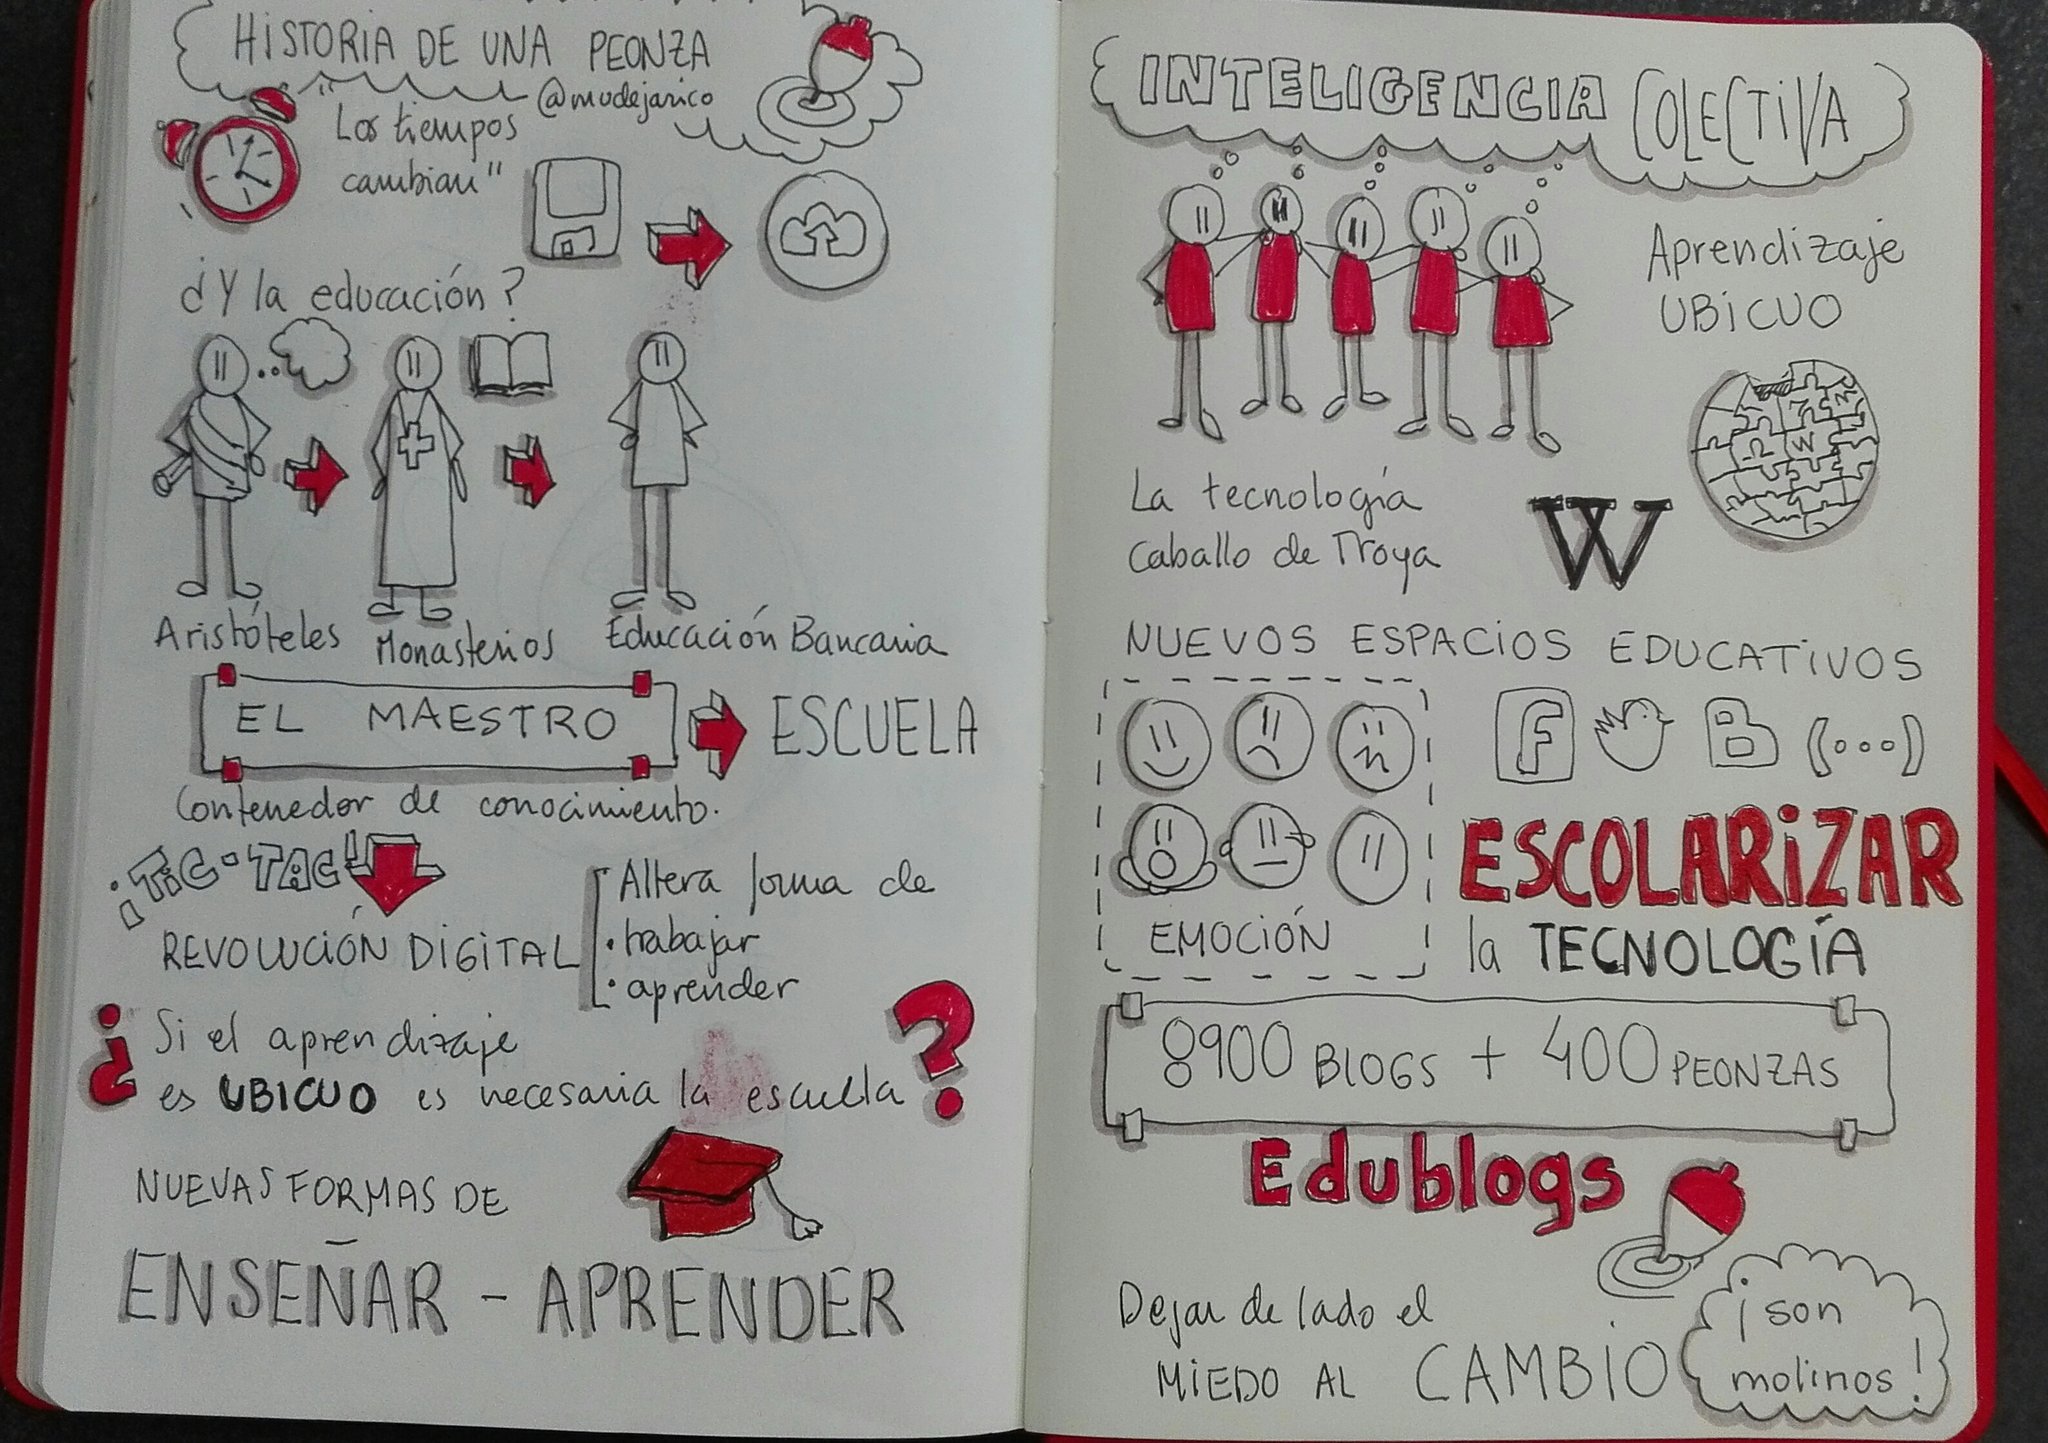 HISTORIA DE UNA PEONZA
@mudejarico
"Los tiempos
cambian"
¿Y la educación?
Aristóteles
Monasterios
Educación Bancaria
EL MAESTRO
ESCUELA
Contenedor de conocimiento.
¡TIC·TAC!
REVOLUCIÓN DIGITAL
Altera forma de
· trabajar
· aprender
¿Si el aprendizaje
es UBICUO es necesaria la escuela?
NUEVAS FORMAS DE
ENSEÑAR - APRENDER
INTELIGENCIA COLECTIVA
Aprendizaje
UBICUO
W
La tecnología
Caballo de Troya
W
NUEVOS ESPACIOS EDUCATIVOS
F B (...)
EMOCIÓN
ESCOLARIZAR
la TECNOLOGÍA
8900 BLOGS + 400 PEONZAS
Edublogs
Dejar de lado el
MIEDO AL CAMBIO
¡son
molinos!